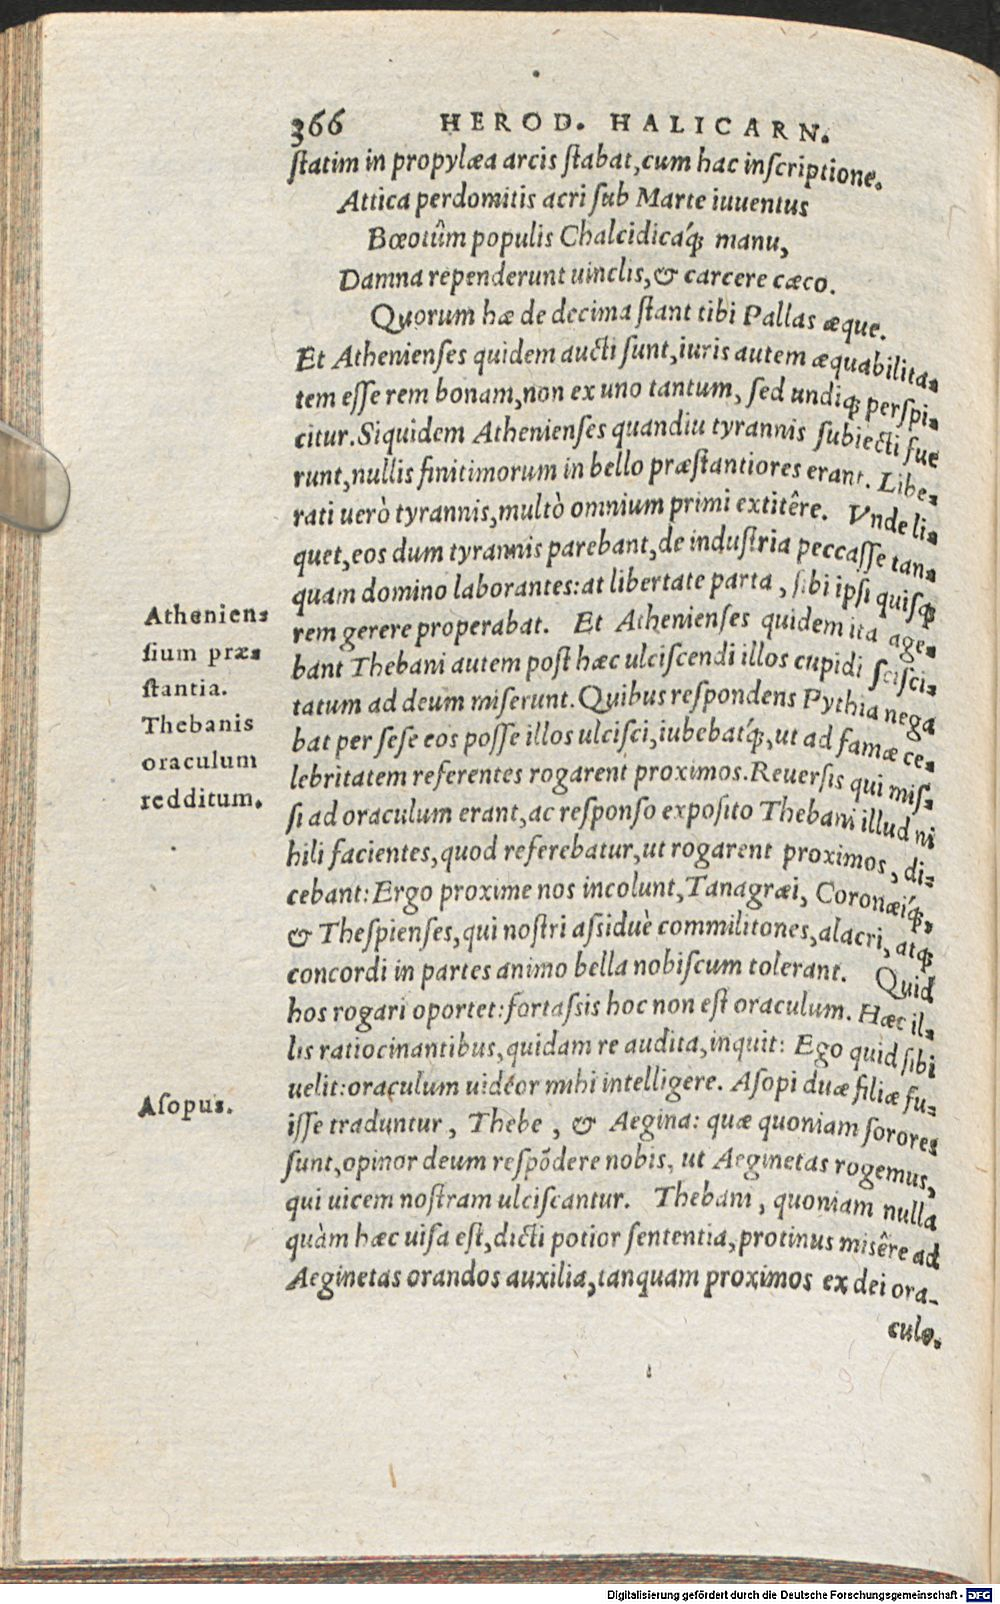 366 HEROD. HALICARN.
ſtatim in propylæa arcis ſtabat, cum hac inſcriptione.
Attica perdomitis acri ſub Marte iuuentus
Bœotûm populis Chalcidicáq́; manu,
Damna rependerunt uinclis, & carcere cæco.
Quorum hæ de decima ſtant tibi Pallas æque.
Et Athenienſes quidem aucti ſunt, iuris autem æquabilita-
tem eſſe rem bonam, non ex uno tantum, ſed undiq; perſpi-
citur. Siquidem Athenienſes quandiu tyrannis ſubiecti fue
runt, nullis finitimorum in bello præſtantiores erant. Libe-
rati uerò tyrannis, multò omnium primi extitêre. Vnde li-
quet, eos dum tyrannis parebant, de induſtria peccaſſe tan-
quam domino laborantes: at libertate parta, ſibi ipſi quiſq;
rem gerere properabat. Et Athenienſes quidem ita age-
bant Thebani autem poſt hæc ulciſcendi illos cupidi ſciſci-
tatum ad deum miſerunt. Quibus reſpondens Pythia nega
bat per ſeſe eos poſſe illos ulciſci, iubebatq́;, ut ad famæ ce-
lebritatem referentes rogarent proximos. Reuerſis qui miſ-
ſi ad oraculum erant, ac reſponſo expoſito Thebani illud ni
hili facientes, quod referebatur, ut rogarent proximos, di-
cebant: Ergo proxime nos incolunt, Tanagræi, Coronæiq́;,
& Theſpienſes, qui noſtri aſsiduè commilitones, alacri, atq;
concordi in partes animo bella nobiſcum tolerant. Quid
hos rogari oportet: fortaſsis hoc non eſt oraculum. Hæc il-
lis ratiocinantibus, quidam re audita, inquit: Ego quid ſibi
uelit: oraculum uideor mihi intelligere. Aſopi duæ filiæ fu-
iſſe traduntur, Thebe, & Aegina: quæ quoniam ſorores
ſunt, opinor deum reſpõdere nobis, ut Aeginetas rogemus,
qui uicem noſtram ulciſcantur. Thebani, quoniam nulla
quàm hæc uiſa eſt, dicti potior ſententia, protinus misêre ad
Aeginetas orandos auxilia, tanquam proximos ex dei ora-
culo.
Athenien-
ſium præ-
ſtantia.
Thebanis
oraculum
redditum.
Aſopus.
Digitalisierung gefördert durch die Deutsche Forschungsgemeinschaft - DFG